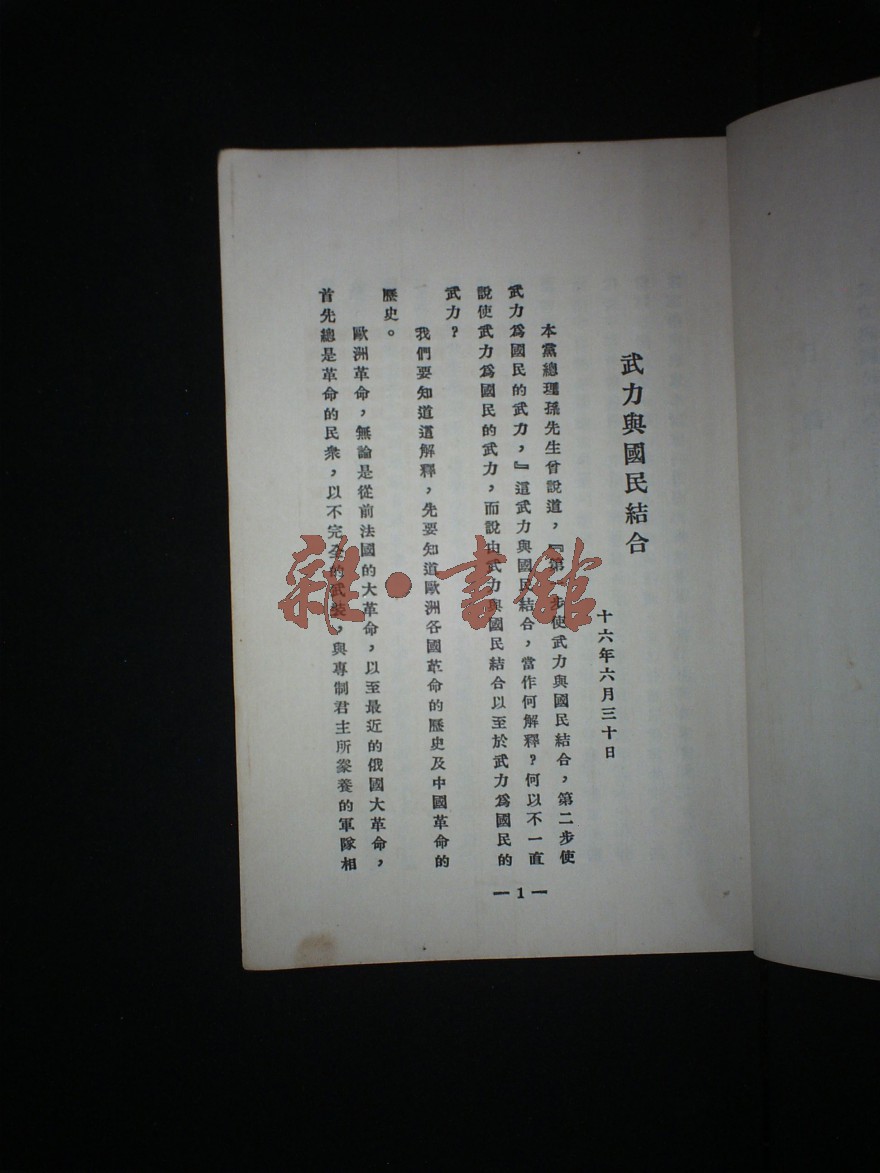 武力與國民結合
十六年六月三十日
本黨總理孫先生曾說道，『第一步使武力與國民結合，第二步使
武力爲國民的武力，』這武力與國民結合，當作何解釋？何以不一直
說使武力爲國民的武力，而說由武力與國民結合以至於武力爲國民的
武力？
我們要知道這解釋，先要知道歐洲各國革命的歷史及中國革命的
歷史。
歐洲革命，無論是從前法國的大革命，以至最近的俄國大革命，
首先總是革命的民衆，以不完全的武裝，與專制君主所豢養的軍隊相
— 1 —
雜·書館